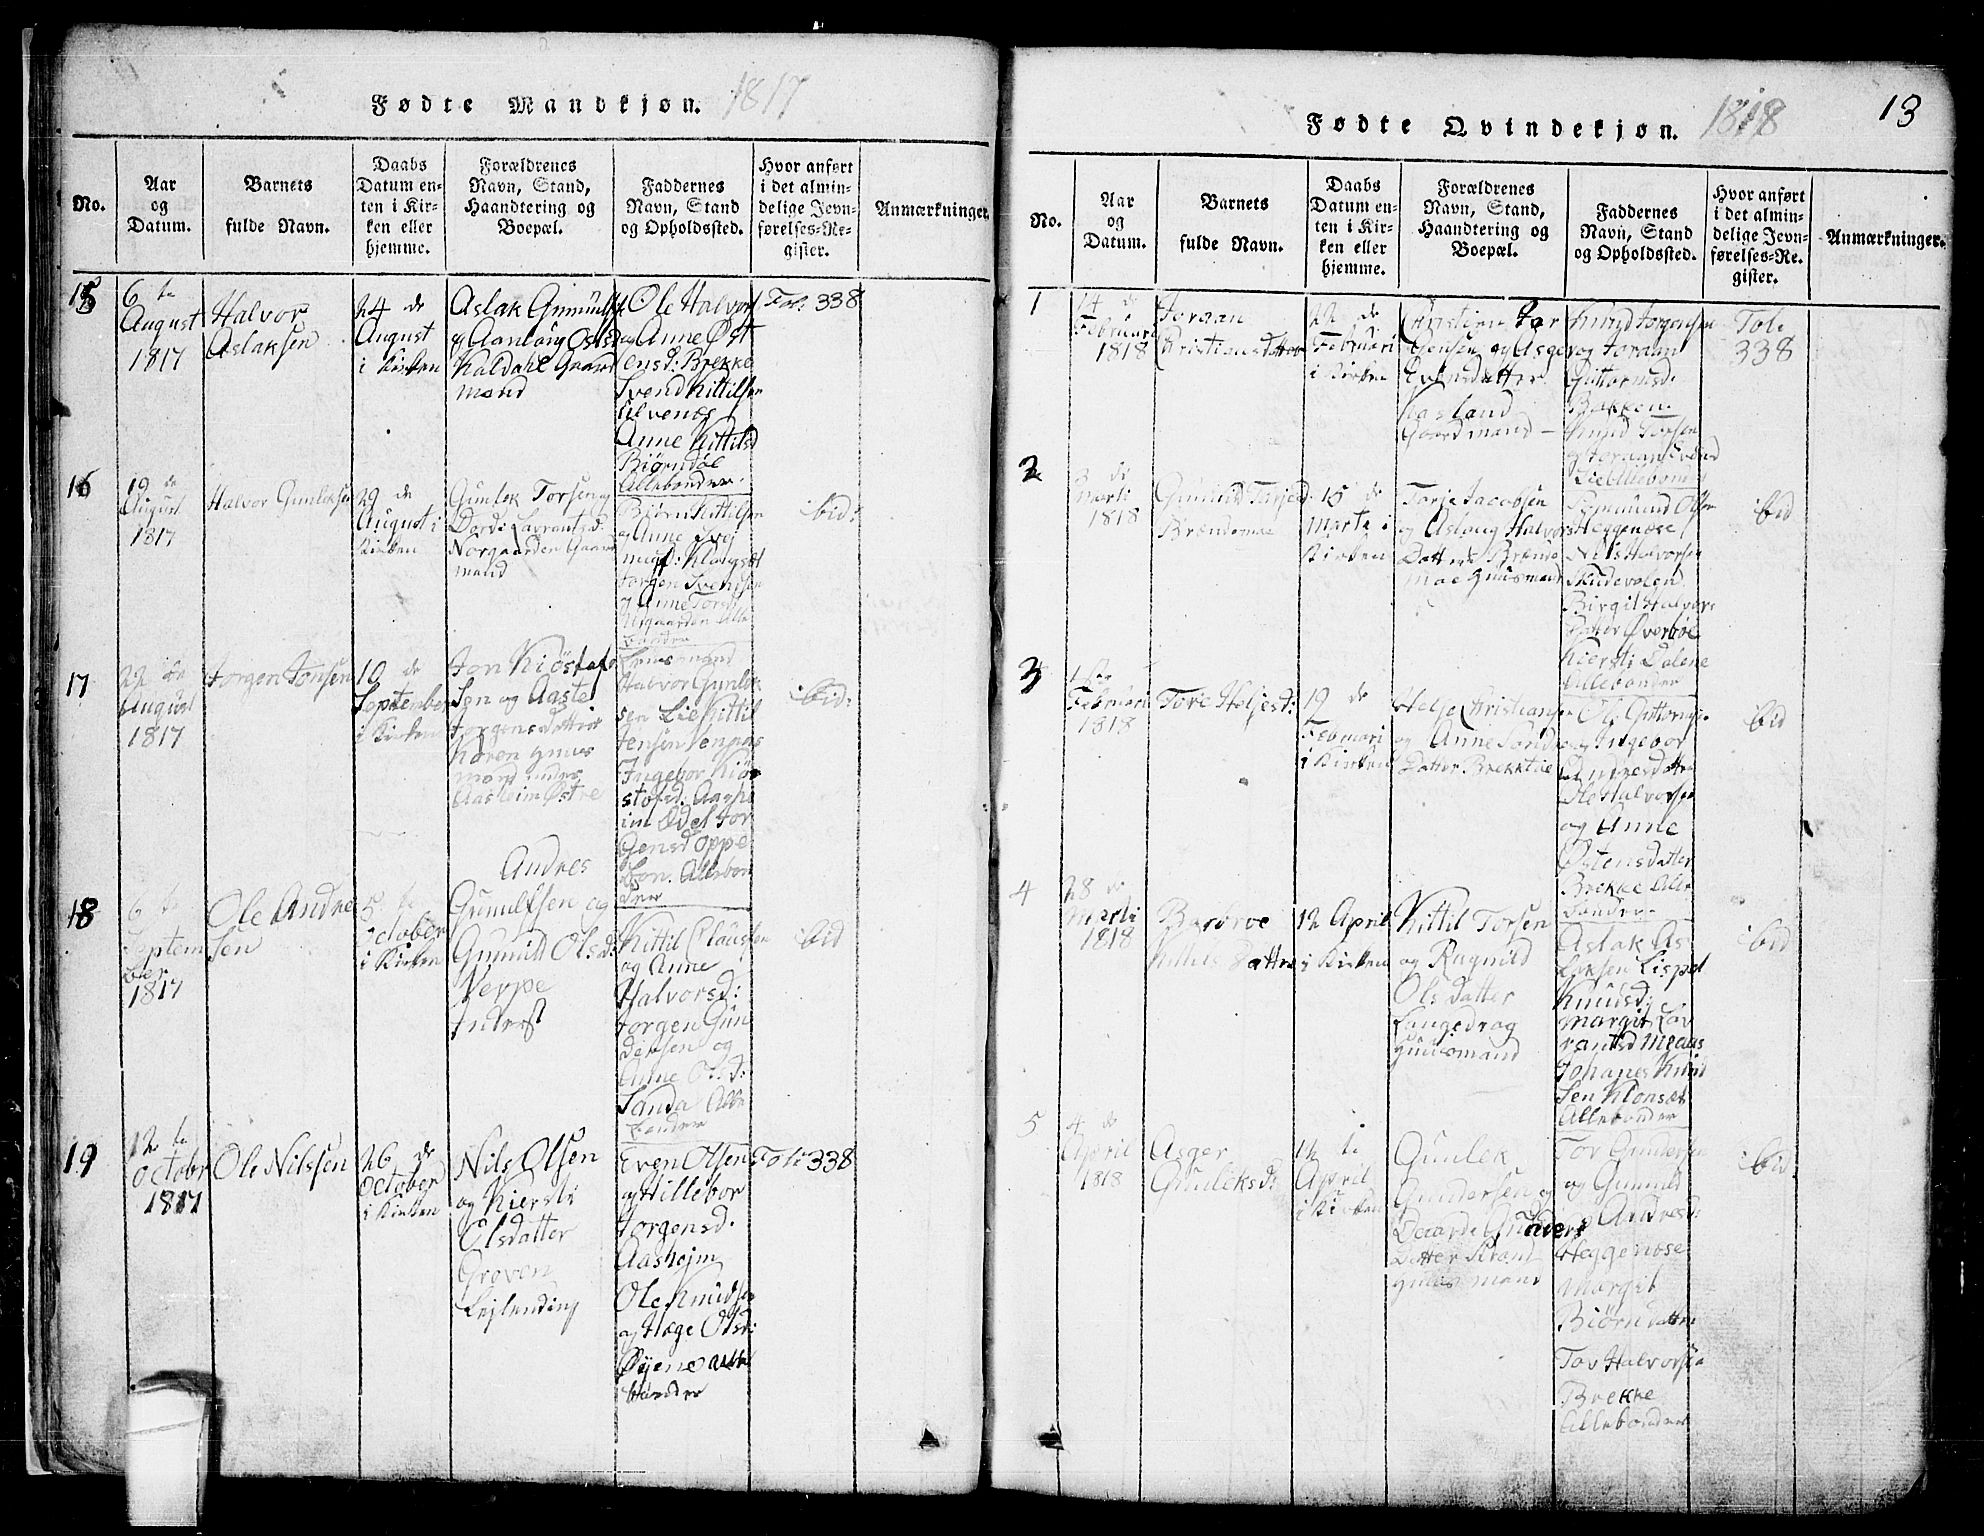 Fødte Mandkjøn. 1817
No.
Aar
og
Datum.
Barnets
fulde Navn.
Daabs
Datum en-
ten i Kir-
ken eller
hjemme.
Forældrenes
Navn, Stand,
Haandtering og
Boepæl.
Faddernes
Navn, Stand
og Opholdssted.
Hvor anført
i det almin-
delige Jevn-
førelses-Re-
gister.
Anmærkninger.
15
6 te
August
1817
Halvor
Aslaksen
24 de
August
i Kirken
Aslak Gunnuls
og Aanlaug Olsd
Kaldahl Gaard
mand
Ole Halvors
og Anne Øst
ensd: Brekke
Svend Kittilsen
Ulvenæs
Anne Kittilsd
Biørndøl
Allebønder.
Fol: 338
16
19 de
August
1817
Halvor Gunleksen
29 de
August i
Kirken
Gunlek Torsen og
Dordi Lavrantsd.
Norgaarden Gaard
mand
Biørn Kittilsen
og Anne
Jorgen Svensen
og Anne Torsd
Allebønder
ibid:
17
22 de
August
1817
Jorgen Jonsen
10 de
September
i Kirken
Jon Kiöstof
Sen og Aaste
Jorgensdatter
Huus
mand under
Aasheim Østre
Halvor Gunlek
sen Lie Kittil
Jensen
Ingebor Kiös
stofd. Aashe
im Ødel Jor
Gensd Oppe
boen. Allebon
der
ibid:
18
6 te
Septem
ber
1817
Ole Andre
Sen
5 te
October
i Kirken
Andres
Gunulfsen og
Gunuld Olsd:
Verpe
Inderst
Kittil Clausen
og Anne
Halvorsd:
Jorgen Gun
dersen og
Anne Olsd:
Sanda Alle
bønder
ibid
19
12 te
Octobr
1817
Ole Nilssen
26 de
October
i Kirken
Nils Olsen
og Kiersti
Olsdatter
Groven
Lejlending
Even Olsen
og Hillebor
Jorgensd.
Aashejm
Ole Knudsen
og Hæge Olsd:
Øyene alle
bønder
Fol: 338
Fødte Qvindekjøn. 1818
13
No.
Aar
og
Datum.
Barnets
fulde Navn.
Daabs
Datum en-
ten i Kir-
ken eller
hjemme.
Forældrenes
Navn, Stand,
Haandtering og
Boepæl.
Faddernes
Navn, Stand
og Opholdssted.
Hvor anført
i det almin-
delige Jevn-
førelses-Re-
gister.
Anmærkninger.
1
14 de
Februari
1818
Joraan
Kristiansdatter
22 de
Februari
i Kirken
Christien Jor
Gensen og Asger
Evensdatter
Hasland
Gaardmand
Knud Jorgensen
og Joraan
Guttormsd.
Bakken
Knud Torsen
og Joraan
Fol:
338
2
3 de
Marti
1818
Gunuld Torjed.
Brændemoe
15 de
Marti i
Kirken
Torje Jacobsen
og Aslaug Halvors
Datter Brænde
moe Huusmand
Somund Olsen
Heggenæse
Nils Halvorsen
Skudevolen
Birgit Halvors
Datter Øverbøe
Kiersti Dalene
Allebønder
ibid
3
1 ste
Februari
1818
Tore Heljesd:
19 de
Februari
i Kirken
Helje Christiansen
og Anne Sondre
Datter Brekktie
Ole Guttormsen
og Ingebor
Endresdatter
Ole Halvorsen
og Anne
Østensdatter
Brekke Alle
bønder
ibid
4
28 de
Marti
1818
Barbroe
Kittils Datter
12 April
i Kirken
Kittil Torsen
og Ragnild
Olsdatter
Langedrag
Huusmand
Aslak As
laksen Lispet
Knudsd:
Margit Lav
rantsd Moaas
Johanes Knud
Sen Klonsæt
Allebønder
ibid
5
4 de
April
1818
Asger
Gunleksd:
12 te
April
i Kirken
Gunlek
Gundersen og
Daarde Gunders
Datter Strand
Huusmand
Tor Gundersen
og Gunuld
Andresd:
Heggenose
Margit
Biørn datter
Tov Halvorsen
Brekke
Allebønder
ibid